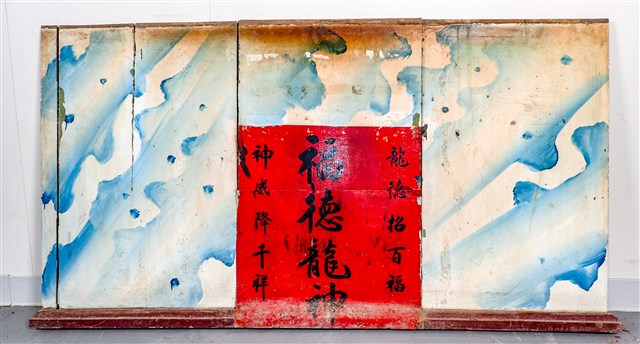 龍德招百福
福德龍神
神威降千祥